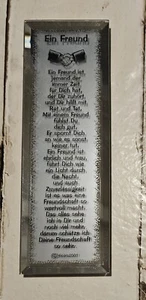 Ein Freund
Ein Freund ist,
jemand der
immer Zeit
für Dich hat,
der Dir zuhört
und Dir hilft mit
Rat und Tat.
Mit einem Freund
fühlst Du
dich gut,
Er spornt Dich
an wie es sonst
keiner tut.
Ein Freund ist
ehrlich und treu,
führt Dich wie
ein Licht durch
die Nacht,
und auch
Zuverlässigkeit
ist es was eine
Freundschaft so
wertvoll macht.
Das alles sehe
ich in Dir und
noch viel mehr
darum schätze ich
Deine Freundschaft
so sehr.